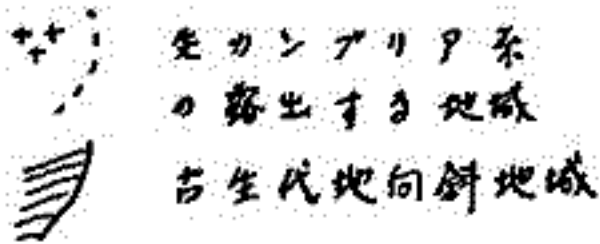 先カンブリア系
の露出する地域
古生代地向斜地域